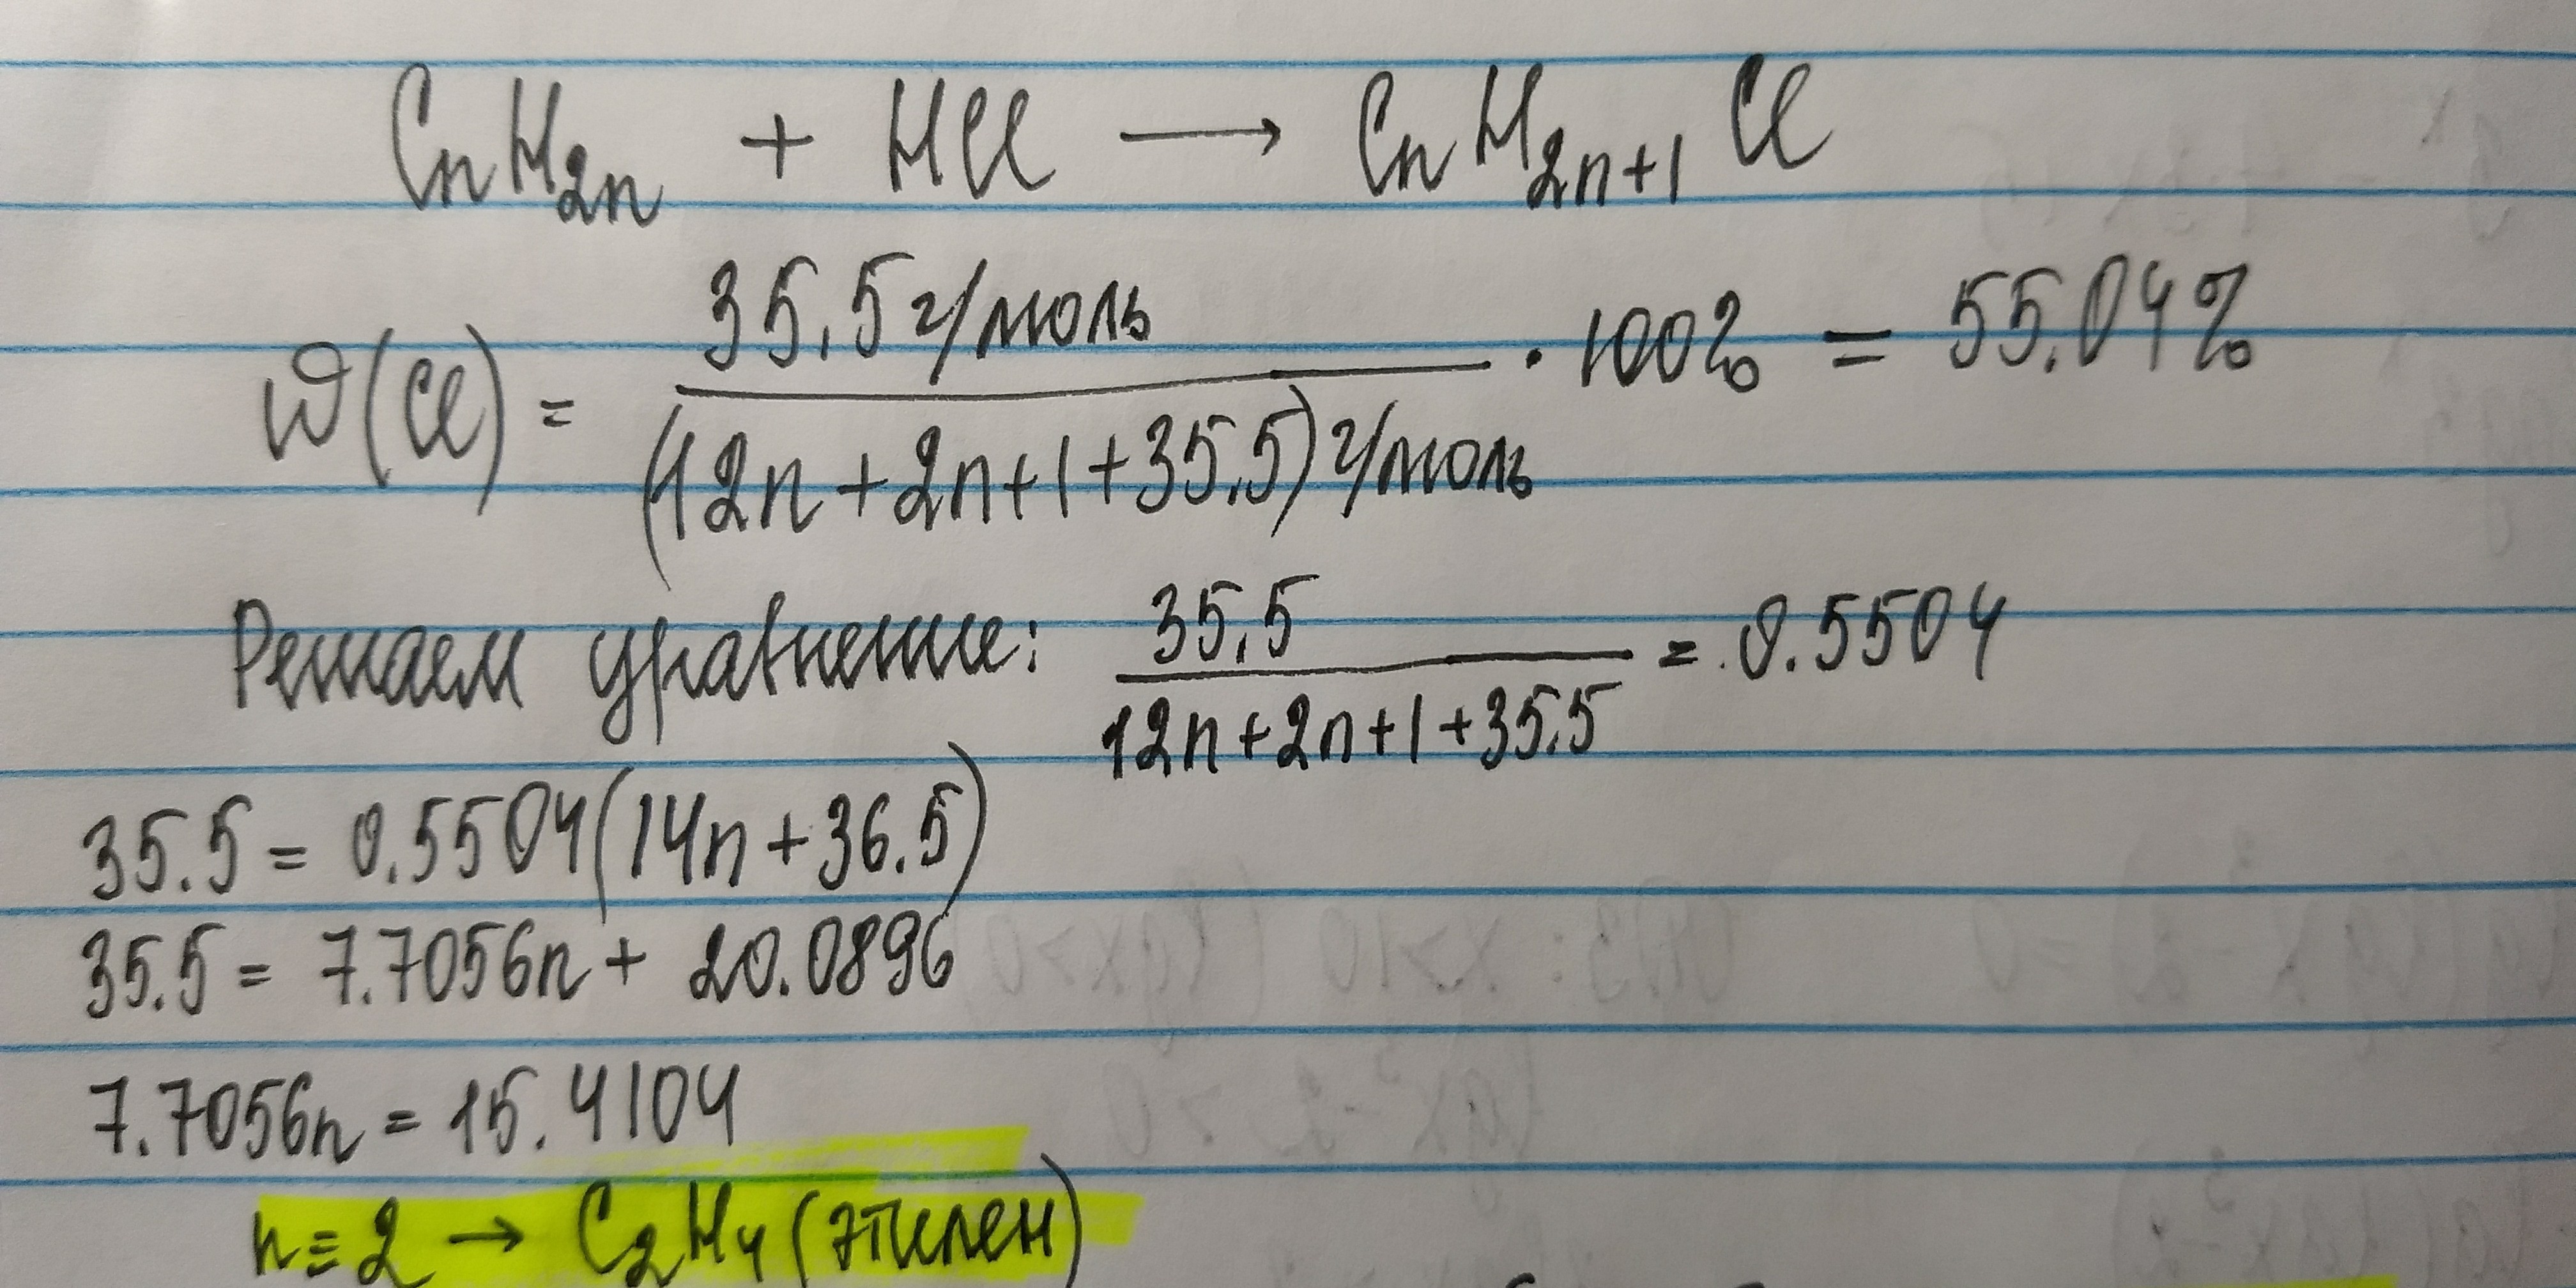 CnH2n + HCl → CnH2n+1Cl
ω(Cl) = 35.5 г/моль / (12n+2n+1+35.5) г/моль · 100% = 55.04%
Решаем уравнение: 35.5 / 12n+2n+1+35.5 = 0.5504
35.5 = 0.5504(14n+36.5)
35.5 = 7.7056n + 20.0896
7.7056n = 15.4104
n = 2 → C2H4 (этилен)